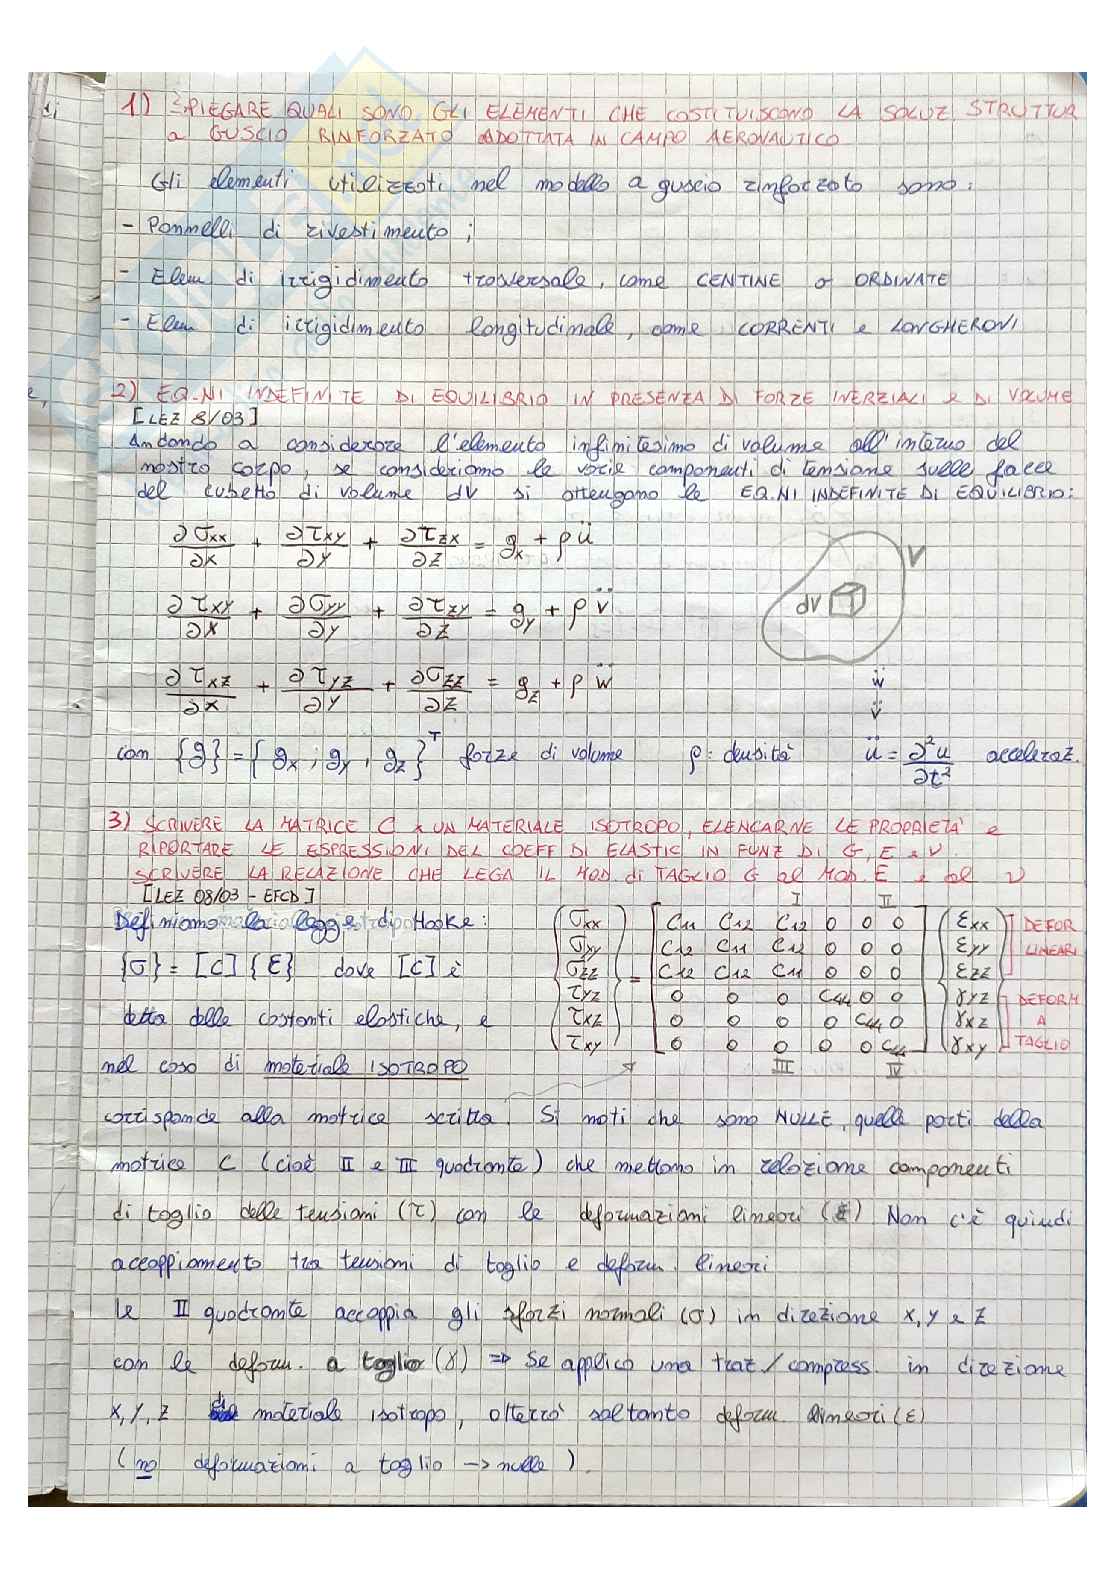 di
1) SPIEGARE QUALI SONO GLI ELEMENTI CHE COSTITUISCONO LA SOLUZ STRUTTUR
a GUSCIO RINFORZATO ADOTTATA IN CAMPO AERONAUTICO
Gli elementi utilizzati nel modello a guscio rinforzato sono:
- Pannelli di rivestimento;
- Elem di irrigidimento trasversale, come CENTINE o ORDINATE
- Elem di irrigidimento longitudinale, come CORRENTI e LONGHERONI
e,
2) EQ.NI INDEFINITE DI EQUILIBRIO IN PRESENZA DI FORZE INERZIALI e DI VOLUME
[LEZ 8/03]
Andando a considerare l'elemento infinitesimo di volume all'interno del
nostro corpo, se consideriamo le varie componenti di tensione sulle facce
del cubetto di volume dV si ottengono le EQ.NI INDEFINITE DI EQUILIBRIO:
∂σxx/∂x + ∂τxy/∂y + ∂τzx/∂z = gx + ρ ü
V
dV
∂τxy/∂x + ∂σyy/∂y + ∂τzy/∂z = gy + ρ v̈
∂τxz/∂x + ∂τyz/∂y + ∂σzz/∂z = gz + ρ ẅ
ẅ
v̈
con {g} = {gx ; gy , gz}ᵀ forze di volume ρ: densità ü = ∂²u/∂t² acceleraz.
3) SCRIVERE LA MATRICE C x UN MATERIALE ISOTROPO, ELENCARNE LE PROPRIETA' e
RIPORTARE LE ESPRESSIONI DEL COEFF DI ELASTIC IN FUNZ DI G, E e ν.
SCRIVERE LA RELAZIONE CHE LEGA IL MOD. di TAGLIO G al MOD. E e al ν
[LEZ 08/03 - EFCD]
I II
Definiamo la legge di Hooke:
{σ} = [C] {ε} dove [C] è
detta delle costanti elastiche, e
nel caso di materiale ISOTROPO
σxx C11 C12 C12 0 0 0 εxx DEFOR
σxy C12 C11 C12 0 0 0 εyy LINEARI
σzz = C12 C12 C11 0 0 0 εzz
τyz 0 0 0 C44 0 0 γyz DEFORM
τxz 0 0 0 0 C44 0 γxz A
τxy 0 0 0 0 0 C44 γxy TAGLIO
III IV
corrisponde alla matrice scritta. Si noti che sono NULLE, quelle parti della
matrice C (cioè II e III quadrante) che mettono in relazione componenti
di taglio delle tensioni (τ) con le deformazioni lineari (ε) Non c'è quindi
accoppiamento tra tensioni di taglio e deform. lineari
le II quadrante accoppia gli sforzi normali (σ) in direzione x, y e z
con le deform. a taglio (γ) => Se applico una traz/compress. in direzione
x, y, z di materiale isotropo, otterrò soltanto deform. lineari (ε)
(no deformazioni a taglio -> nulle).